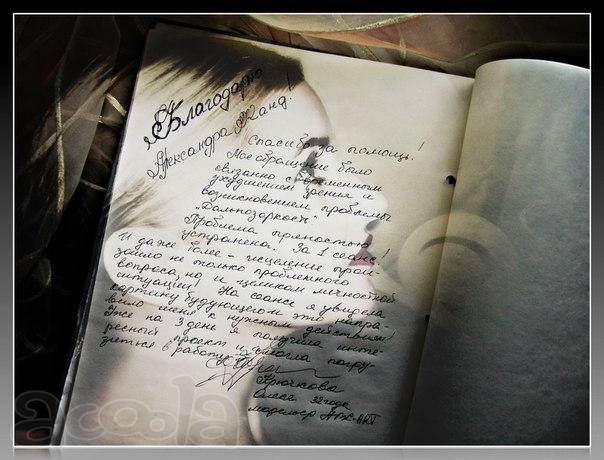 Благодарю
Александра Канд.!
Спасибо за помощь!
Мое обращение было
связанно с временным
ухудшением зрения и
возникновением проблемы
„Дальнозоркость"
Проблема полностью
устранена. За 1 сеанс!
И даже более - исцеление прои-
зошло не только проблемного
вопроса, но и целиком личностной
ситуации! На сеансе я увидела
картину будующего это напра-
вило меня к нужным действиям!
Уже на 3 день я получила инте-
ресный проект и смогла погру-
зиться в работу.
Крючкова
Олеся 32 года
модельер
acoola